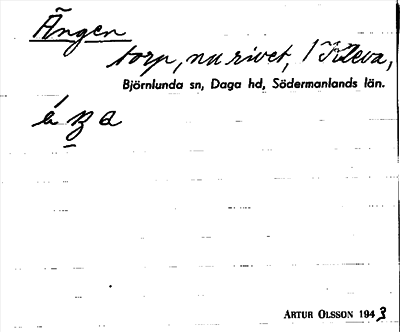 Ängen
torp, nu rivet, / Kleva,
Björnlunda sn, Daga hd, Södermanlands län.
ARTUR OLSSON 1943